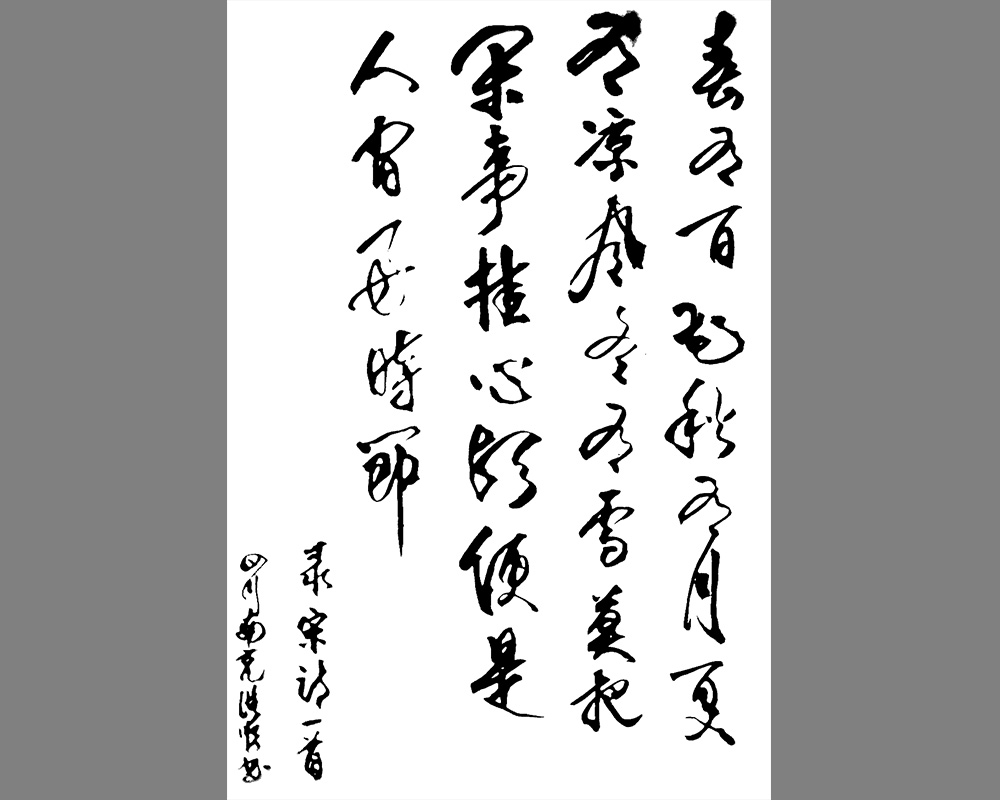 春有百花秋有月夏
有凉風冬有雪莫把
闲事挂心頭便是
人间好時節
录宋诗一首
四川南充书